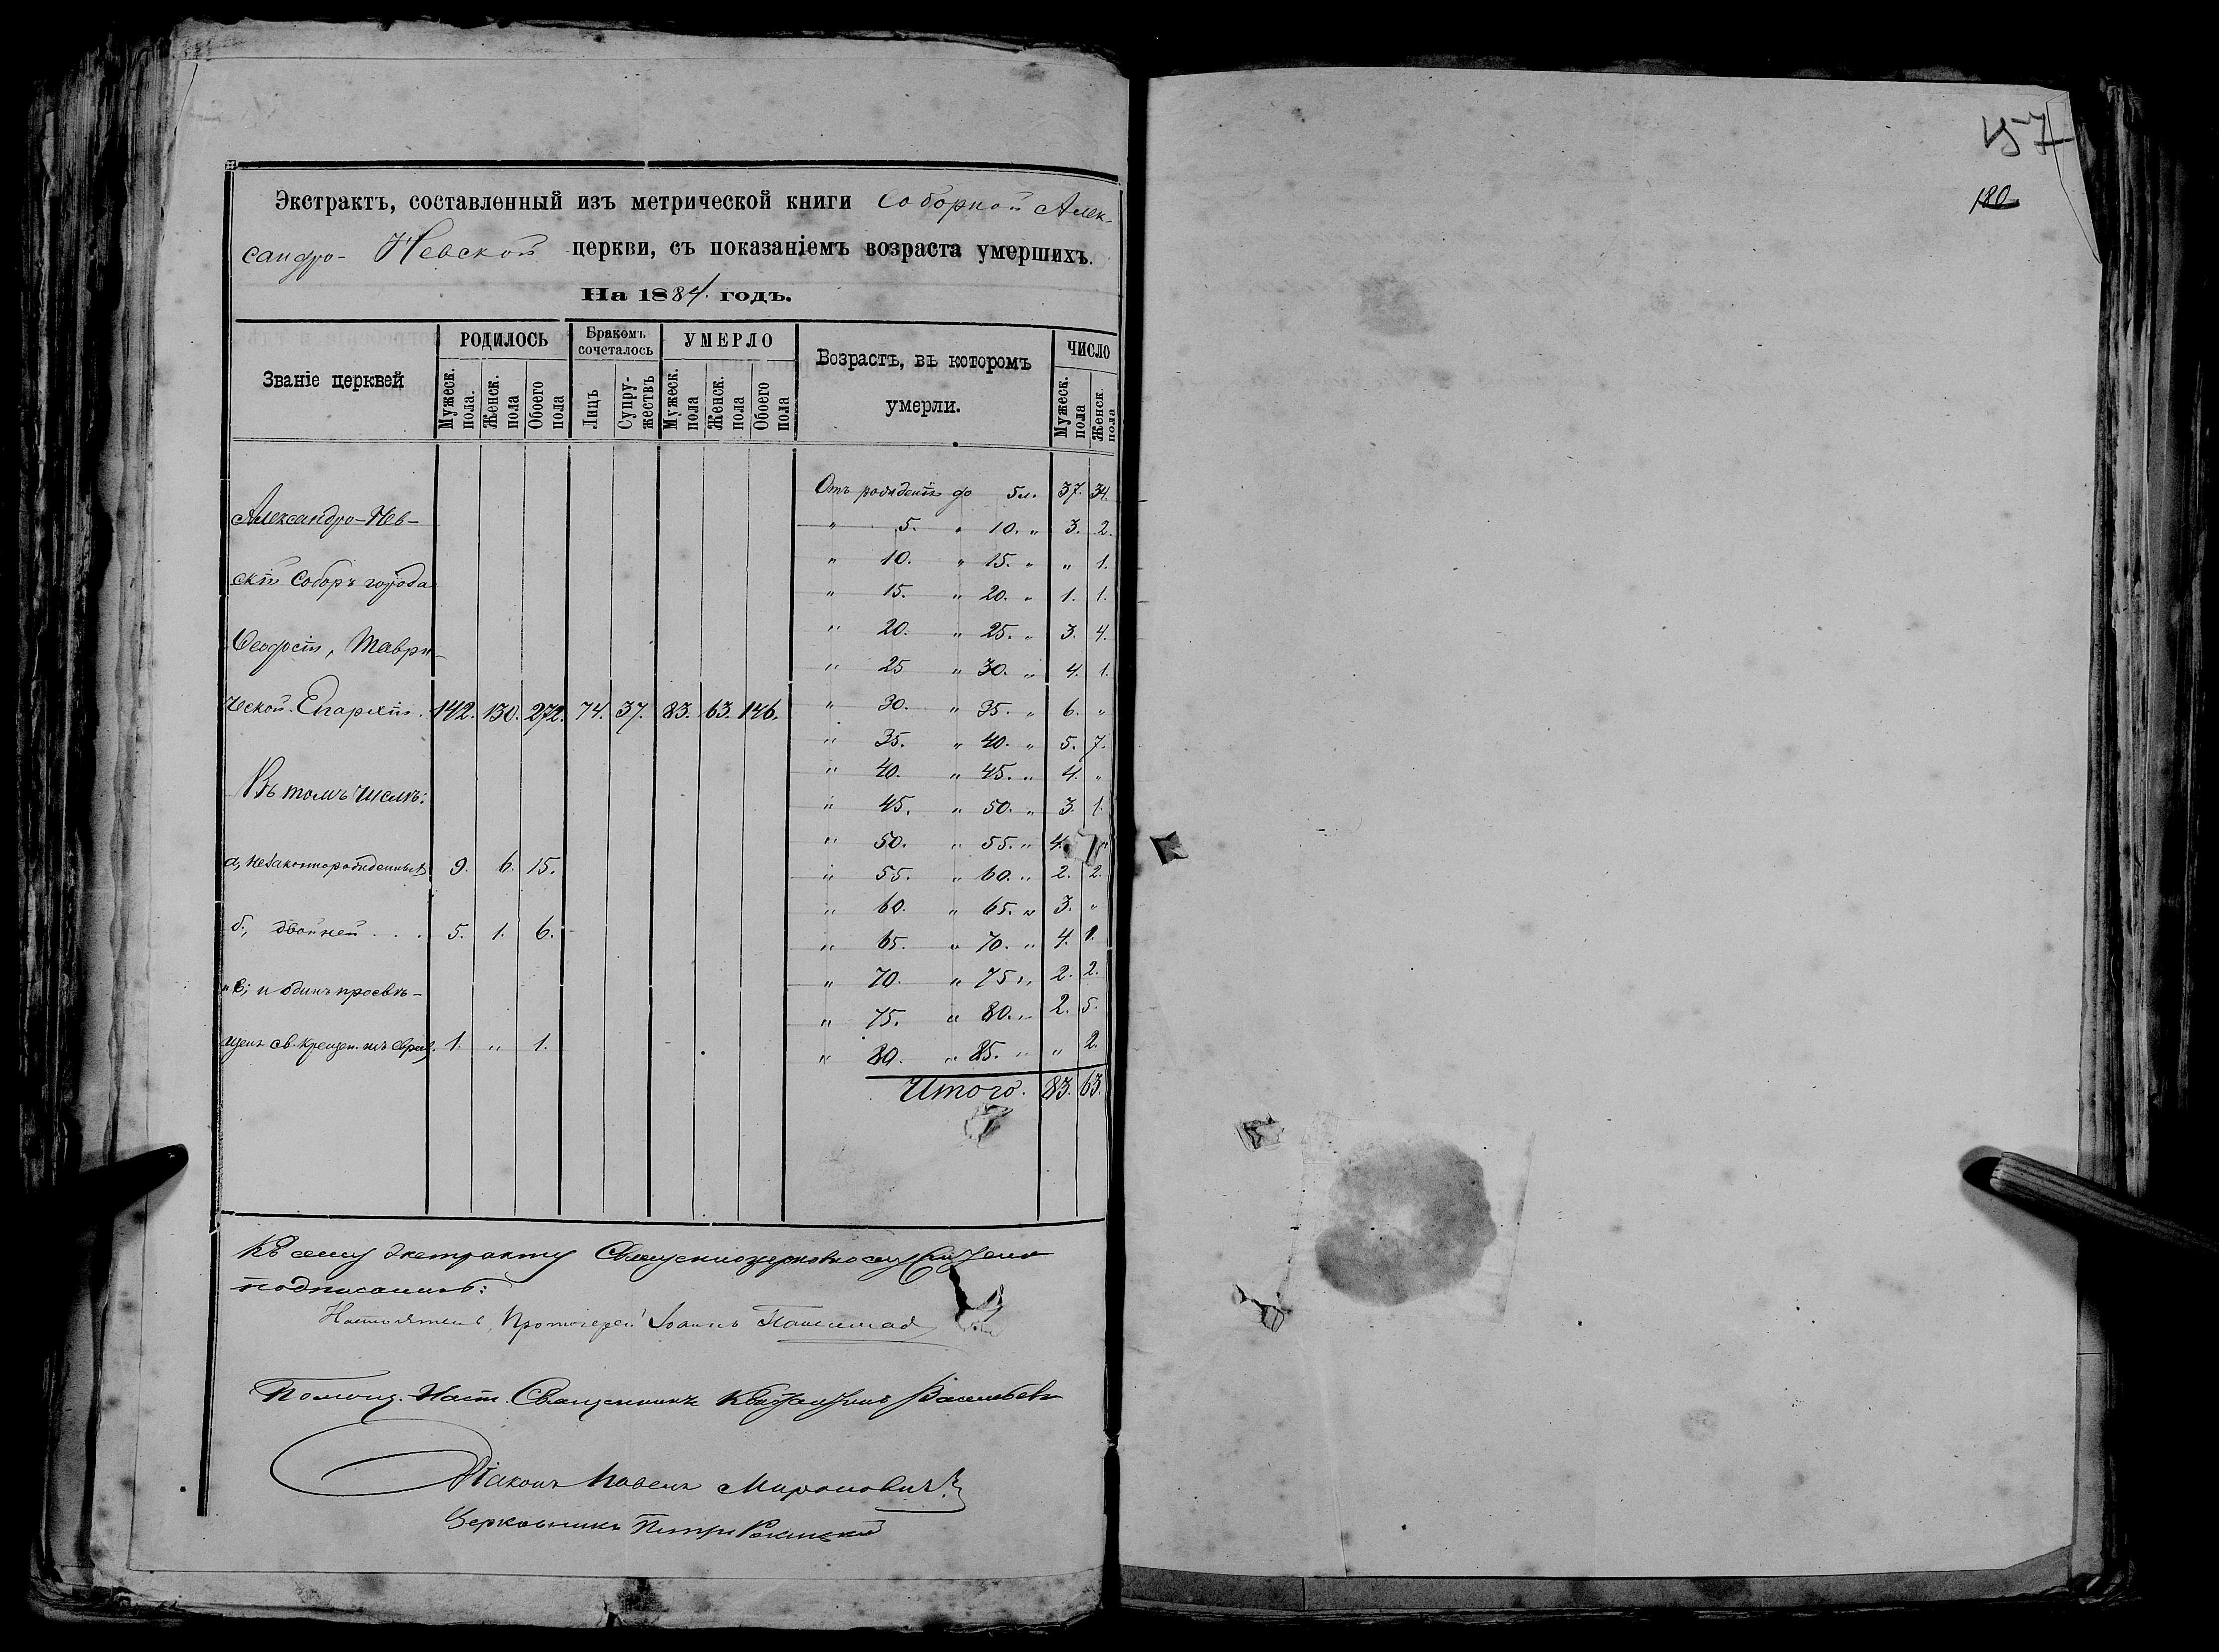 Экстрактъ, составленный изъ метрической книги Соборной Алек-
сандро-Невской церкви, съ показаніемъ возраста умершихъ.
На 1884. годъ.
Званіе церквей
РОДИЛОСЬ
Бракомъ сочеталось
УМЕРЛО
Возрастъ, въ которомъ умерли.
ЧИСЛО
Мужеск. пола.
Женск. пола
Обоего пола
Лицъ
Супру-жествъ
Мужеск. пола
Женск. пола
Обоего пола
Мужеск. пола
Женск. пола
Александро-Нев-
скій Соборъ города
Ѳеодосіи, Таври-
ческой Епархіи. 142. 130. 272. 74. 37. 83. 63. 146.
Въ томъ числѣ:
а, незаконнорожденныхъ 9. 6. 15.
б, двойней . . . 5. 1. 6.
в, и одинъ просвѣ-
щенъ св. крещен. изъ евреевъ. 1. " 1.
Отъ рожденія до 5 л. 37. 34.
" 5. " 10. " 3. 2.
" 10. " 15. " " 1.
" 15. " 20. " 1. 1.
" 20. " 25. " 3. 4.
" 25 " 30. " 4. 1.
" 30. " 35. " 6. "
" 35. " 40. " 5. 7.
" 40. " 45. " 4. "
" 45. " 50. " 3. 1.
" 50. " 55. " 4. "
" 55. " 60. " 2. 2.
" 60. " 65. " 3. "
" 65. " 70. " 4. 1.
" 70. " 75 " 2. 2.
" 75. " 80. " 2. 5.
" 80. " 85. " " 2.
Итого. 83. 63.
Къ сему экстракту
подписались:
Настоятель, Протоіерей Іоаннъ
Помощ. Наст. Священникъ Константинъ Васильевъ
Діаконъ Павелъ Мироновичъ
Церковникъ Петръ
157
180